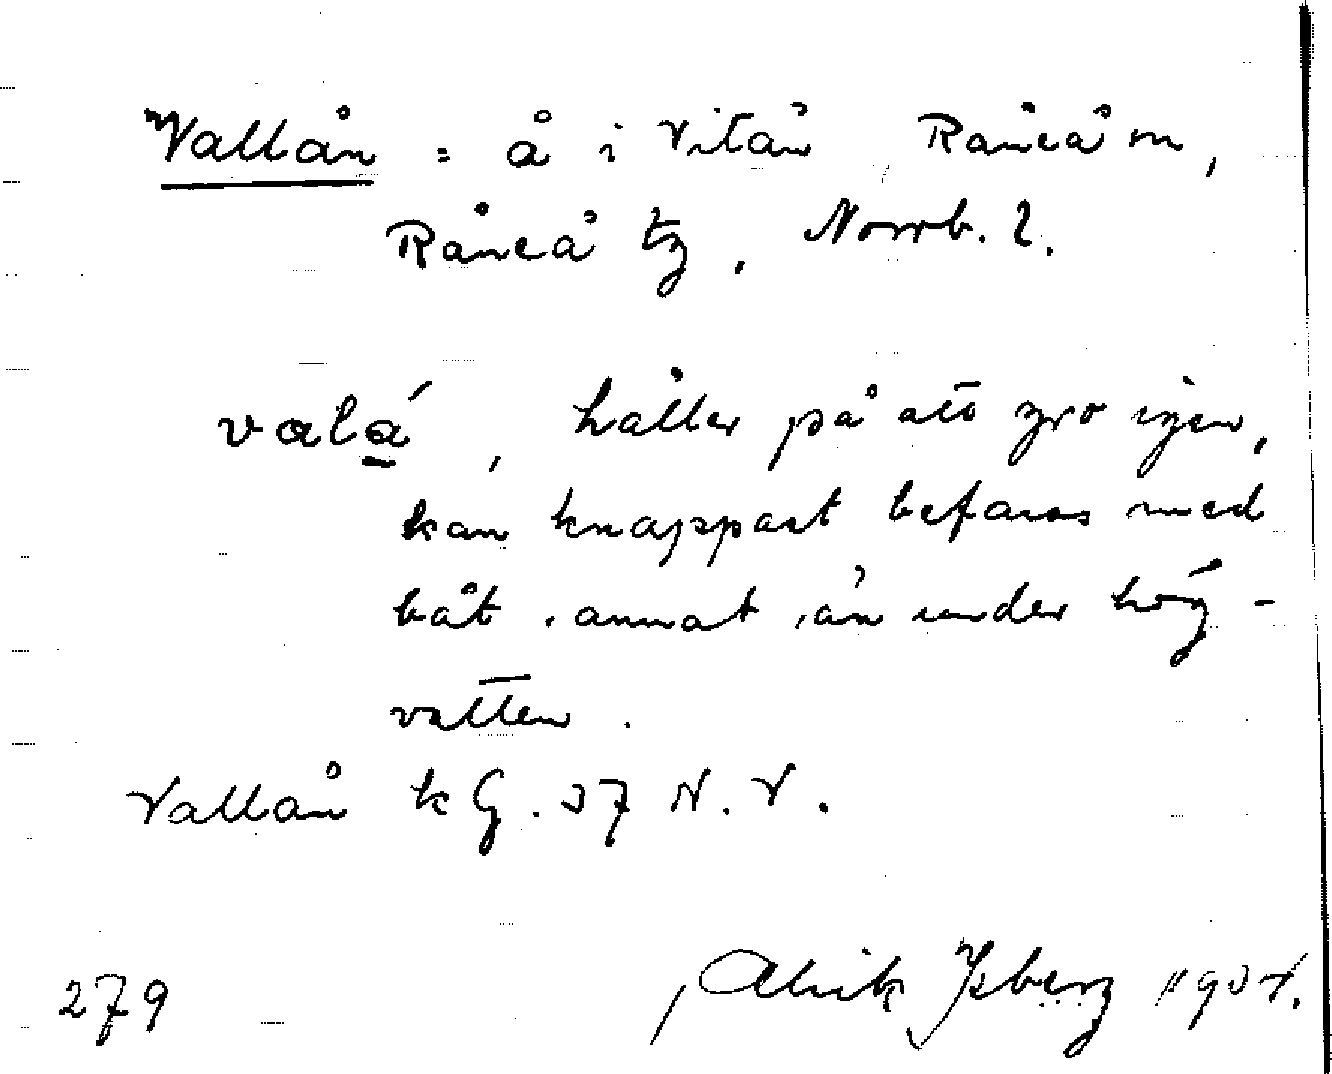 Vallån = å i Vitån Råneå sn,
Råneå tg, Norrb. l.
valǻ, håller på att gro igen,
kan knappast befaras med
båt annat än under hög-
vatten.
Vallån k G. 37 N. V.
279 Alrik Isberg 1937.